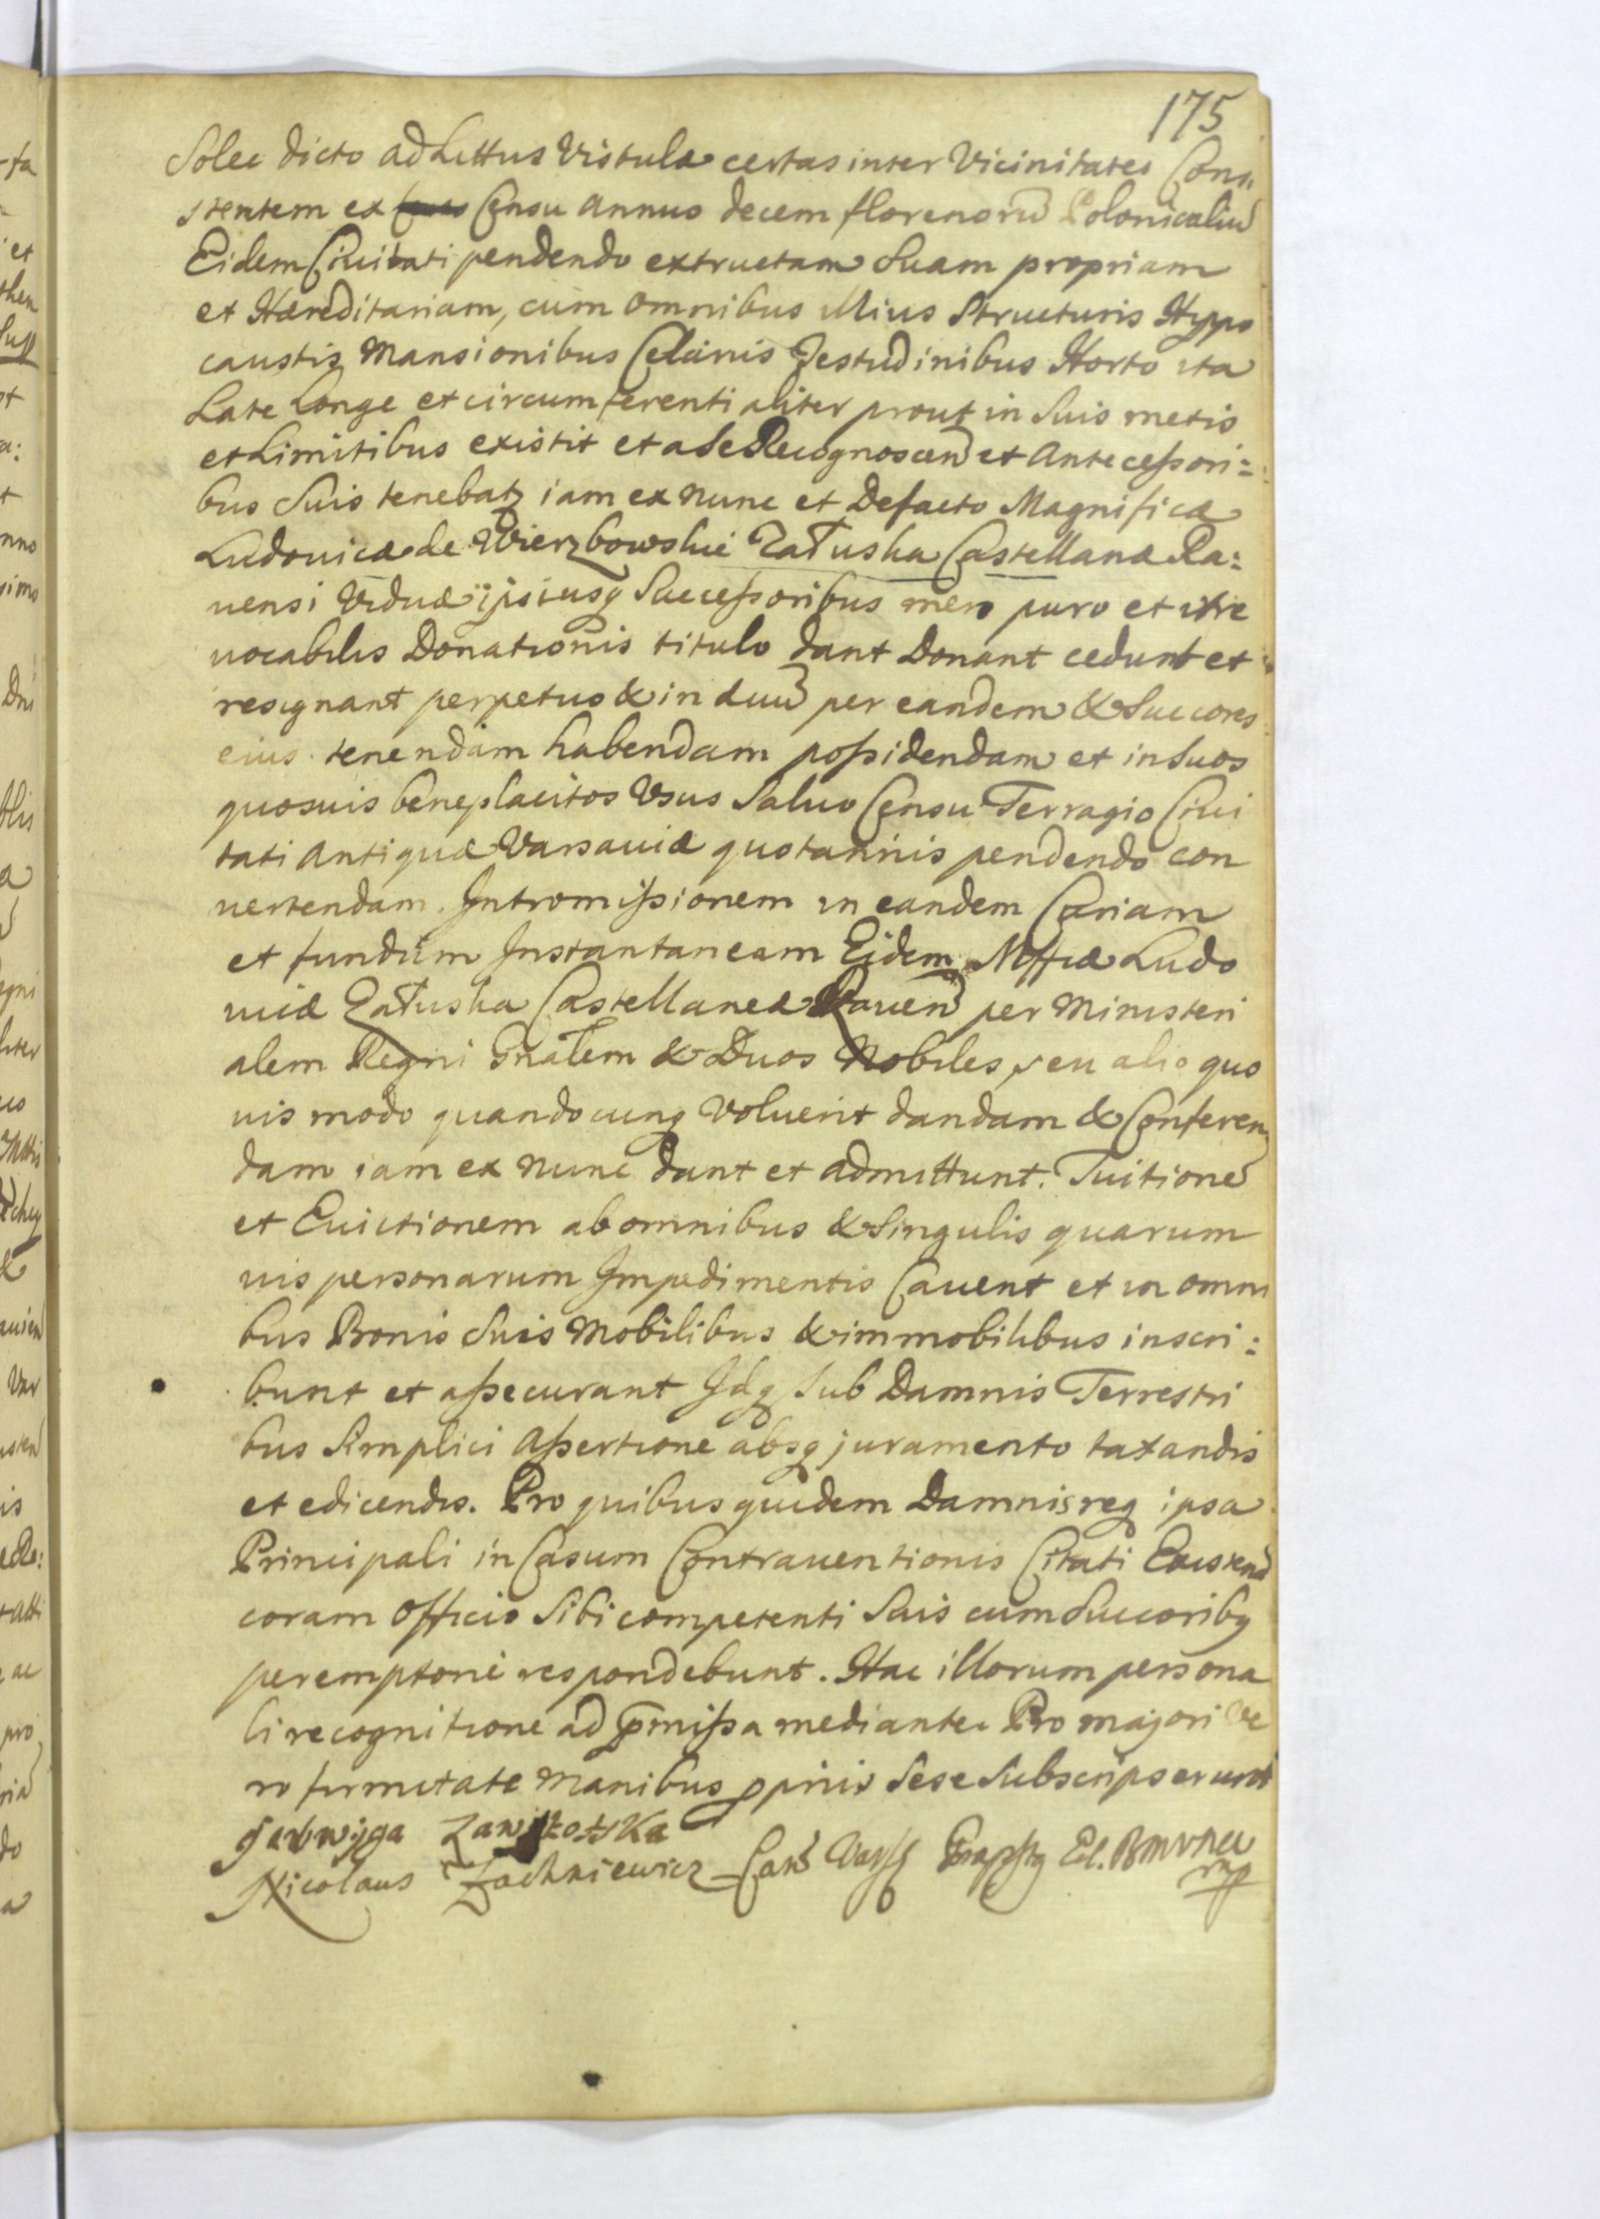 175
Solec dicto ad Littus Vistulæ certas inter Vicinitates Consi
stentem ex Censu Annuo decem florenorũ Polonicaliũ
Eidem Ciuitati pendendo extructam Suam propriam
et Hæreditariam, cum omnibus illius Structuris Hypo
caustis Mansionibus Cellarijs Testudinibus Horto ita
Late Longe et circumferentialiter prout in Suis metis
et Limitibus existit et a Se Recognoscen̄ et Antecessori=
bus Suis tenebatꝫ iam ex nunc et Defacto Magnificæ
Ludouicæ de Wierzbowskie Załuska Castellanæ Ra:
uensi Viduæ ipsiusq Successoribus mero puro et irre
uocabilis Donationis titulo dant Donant cedunt et
resignant perpetuo & in æuũ per eandem & Succores
eius tenendam habendam possidendam et in Suos
quosuis beneplacitos Vsus Saluo Censu Terragio Ciui
tati Antiquæ Varsauiæ quotannis pendendo con
uertendam. Intromissionem in eandem Curiam
et fundum Instantaneam Eidem Mfficæ Ludo
uicæ Załuska Castellaneæ Rauen̄ per Ministeri
alem Regni Gnalem & Duos Nobiles, seu alio quo
uis modo quandocunq voluerit dandam & Conferen
dam iam ex nunc dant et admittunt. Tuitionē
et Euictionem ab omnibus & Singulis quarum
uis personarum Impedimentis Cauent et in omni
bus Bonis Suis Mobilibus & immobilibus inscri:
bunt et assecurant Idq Sub Damnis Terrestri
bus Simplici Assertione absq juramento taxandis
et edicendis. Pro quibus quidem Damnis req ipsa
Principali in Casum Contrauentionis Citati
coram Officio Sibi competenti Suis cum Succoribq
peremptorie respondebunt. Hac illorum persona
li recognitione ad p̄missa mediante. Pro majori ve
ro firmitate Manibus ppriis Sese Subscripserunt
Jadwiga
Nicolaus Zachniewicz
mp